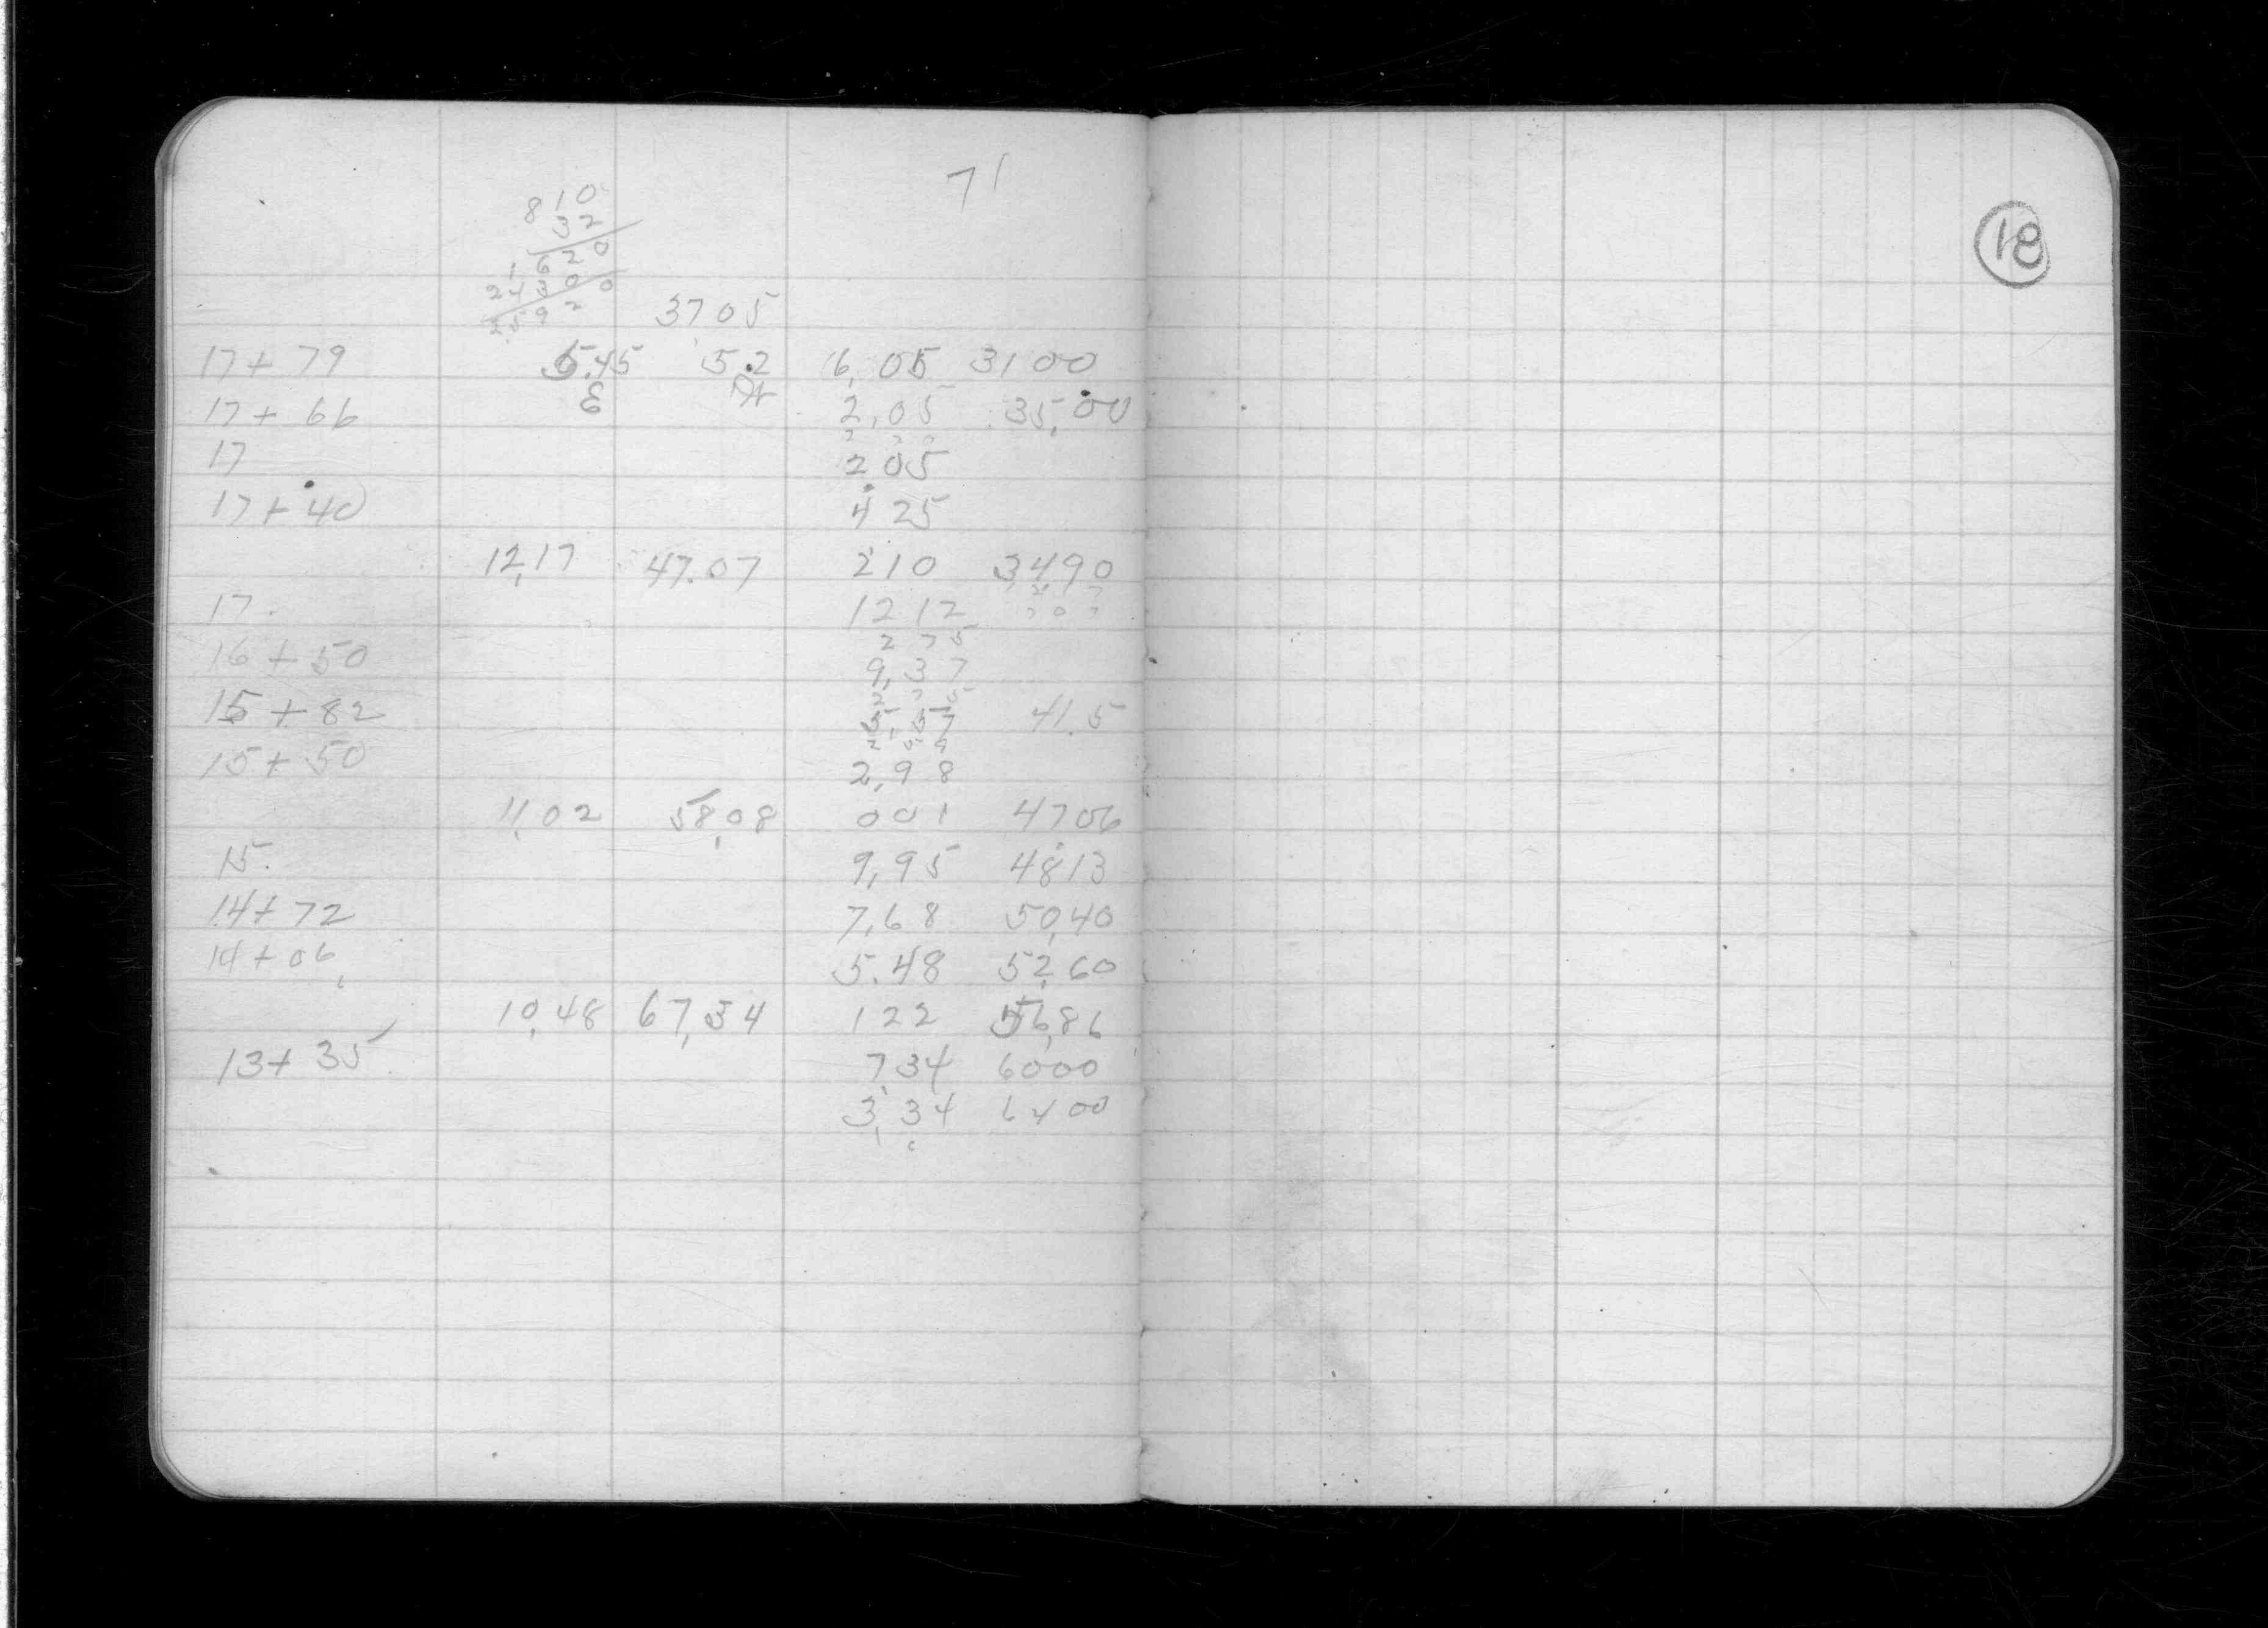 71
18
810
32
1620
2430 0
2592
3705
17+79 5.45 5.2 6,05 3100
17+66 2,05 35,00
17 205
17+40 425
12,17 47.07 210 3490
17. 1212
275
16+50 9,37
15+82 5 57 41.5
15+50 2,98
11,02 58,08 001 4706
15. 9,95 4813
14+72 7,68 50,40
14+06 5.48 52,60
10,48 67,34 122 56,86
13+35 7,34 6000
3,34 6400